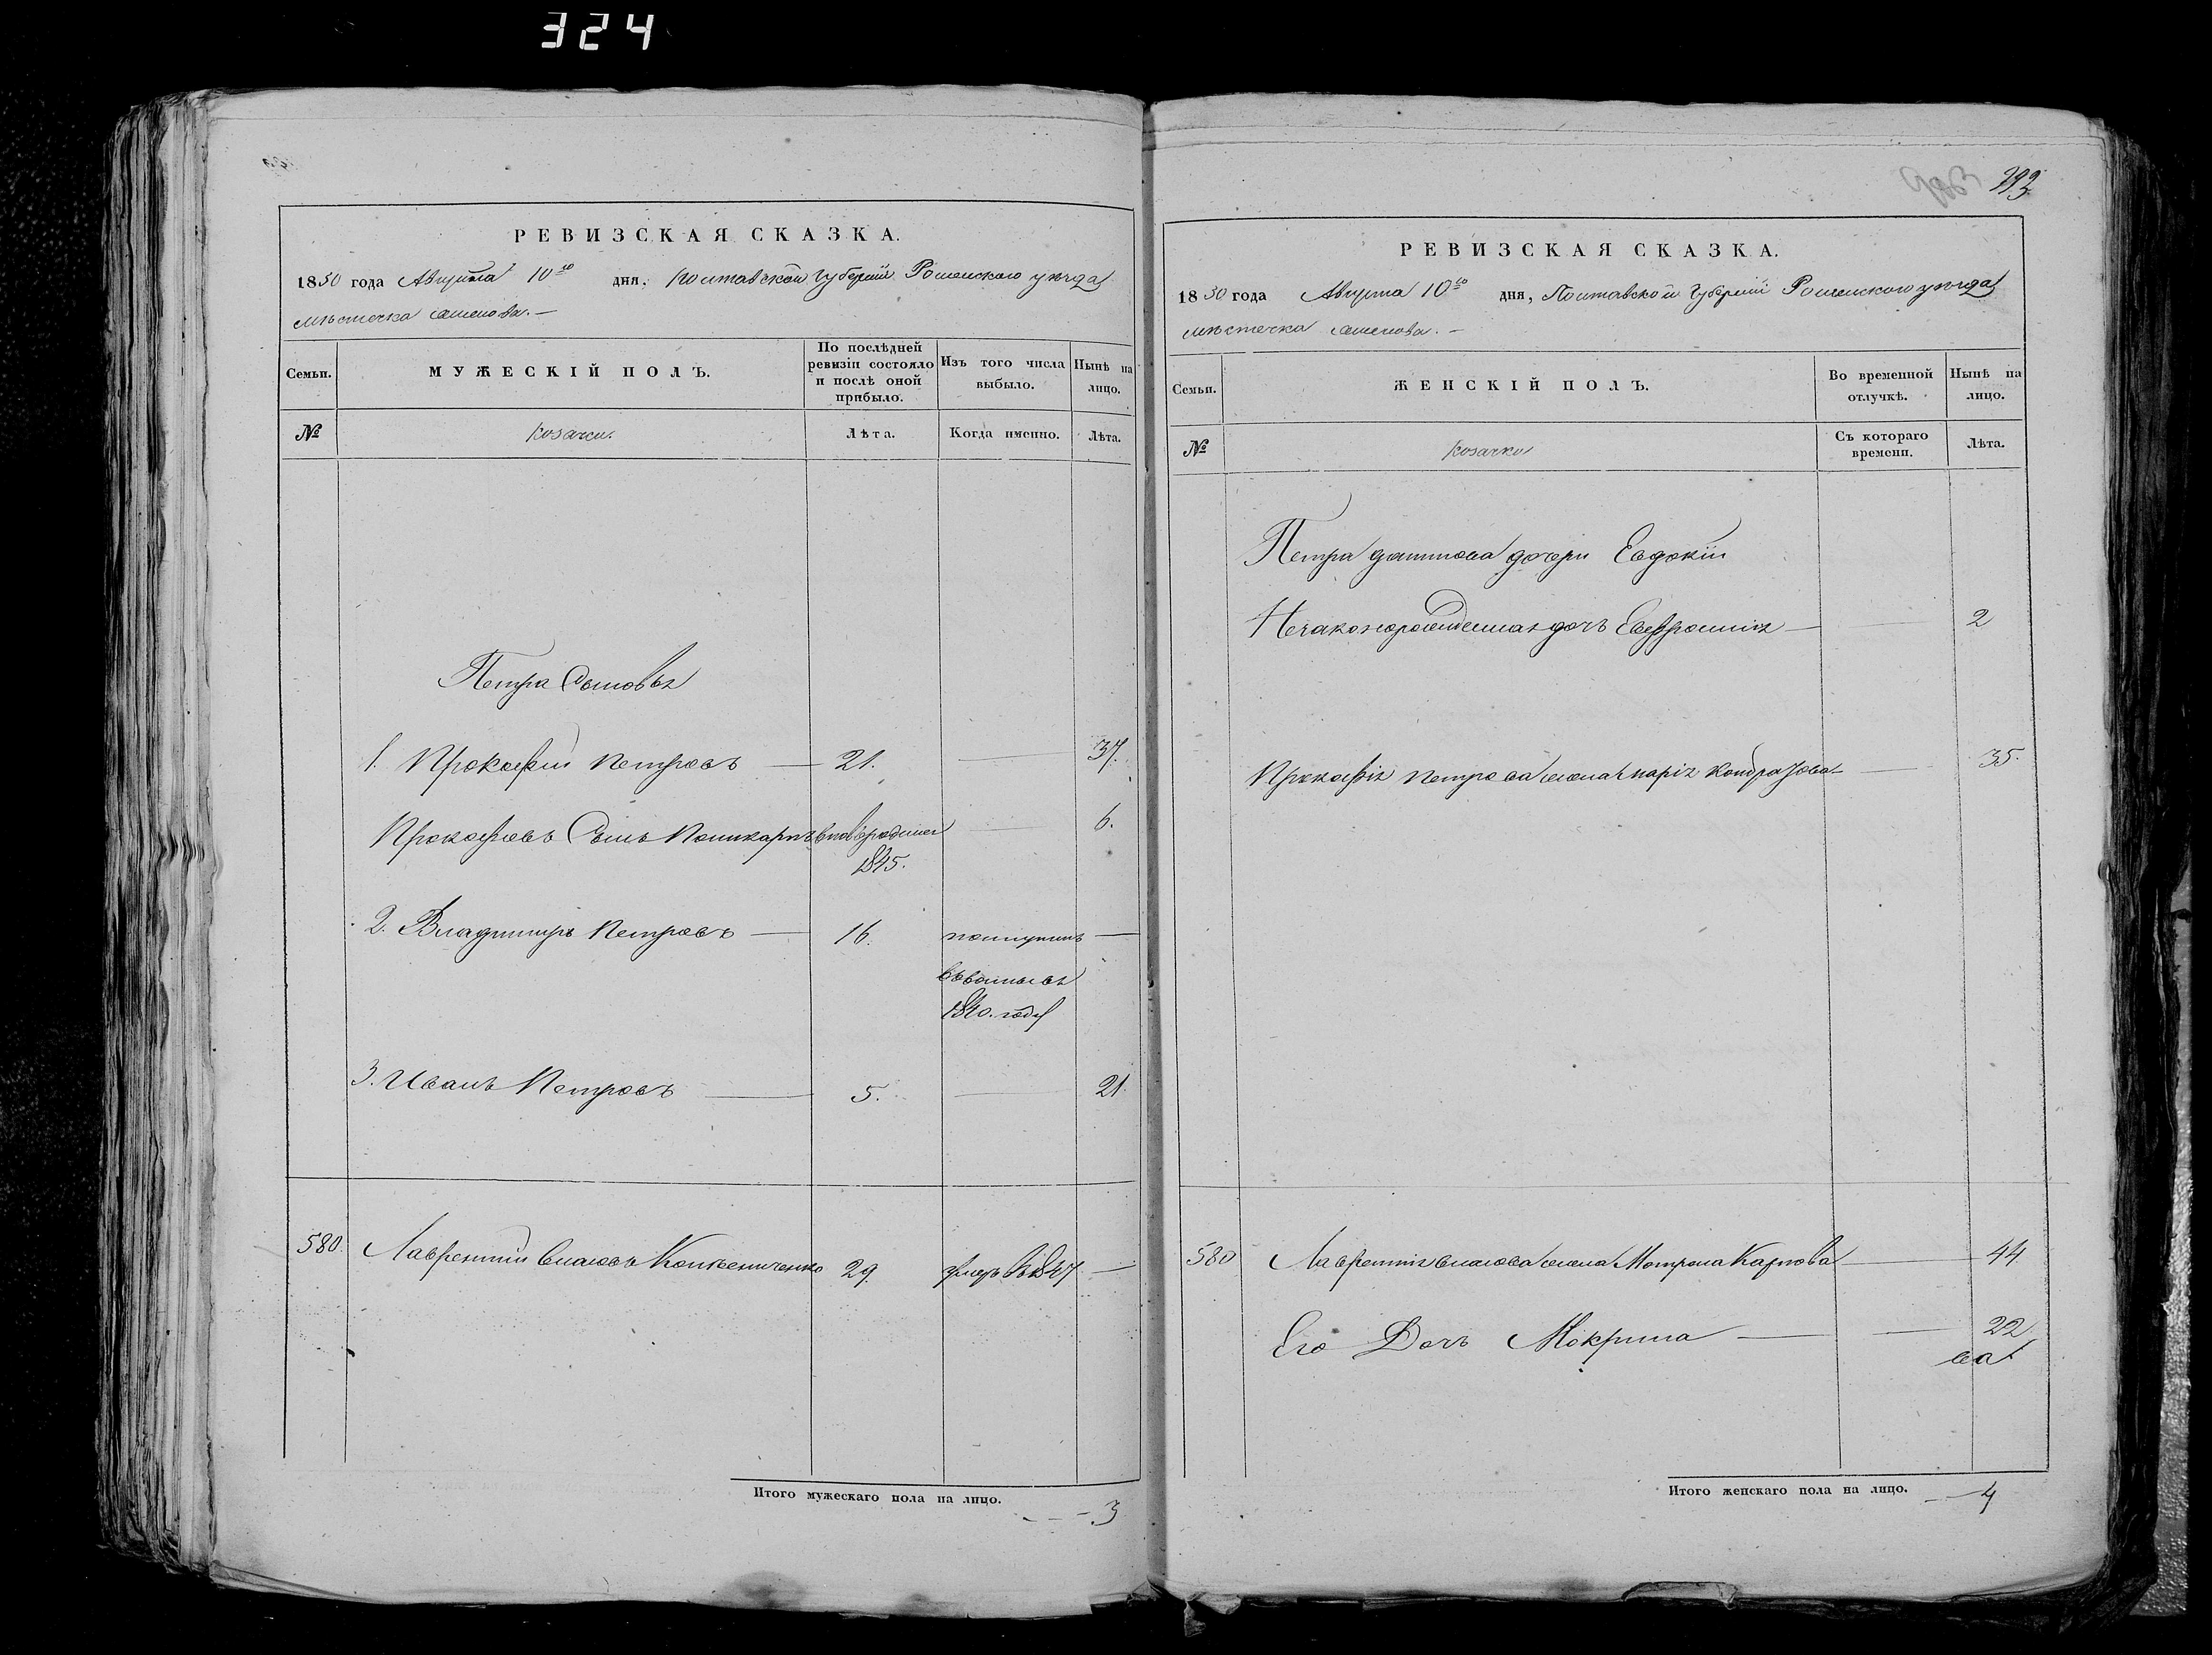 324
РЕВИЗСКАЯ СКАЗКА.
1850 года Августа 10го дня, Полтавской Губернии Роменского уѣзда
мѣстечка
Семьи.
МУЖЕСКІЙ ПОЛЪ.
По послѣдней ревизіи состояло и послѣ оной прибыло.
Изъ того числа выбыло.
Нынѣ на лицо.
№
козаки.
Лѣта.
Когда именно.
Лѣта.
Петра Сыновья
1. Прокофий Петровъ — 21. — 37.
Прокофьевъ Сынъ Поликарпъ вновь рожден 1845. — 6.
2. Владимиръ Петровъ — 16. —
1840. году
3. Иванъ Петровъ — 5. — 21.
580. Лаврентий Власовъ 29. умеръ въ 1847 —
Итого мужескаго пола на лицо. - - - 3
РЕВИЗСКАЯ СКАЗКА.
1850 года Августа 10го дня, Полтавской Губернии Роменского уѣзда
мѣстечка
Семьи.
ЖЕНСКІЙ ПОЛЪ.
Во временной отлучкѣ.
Нынѣ на лицо.
№
козачки
Съ котораго времени.
Лѣта.
Петра дочери Евдокіи
Незаконорожденная дочь Евфросинія — 2
Прокофія Петрова жена Марія — 35.
580 Лаврентія Власова жена Мотрона Карпова — 44.
Его Дочь Мокрина — 22
Итого женскаго пола на лицо. - - 4